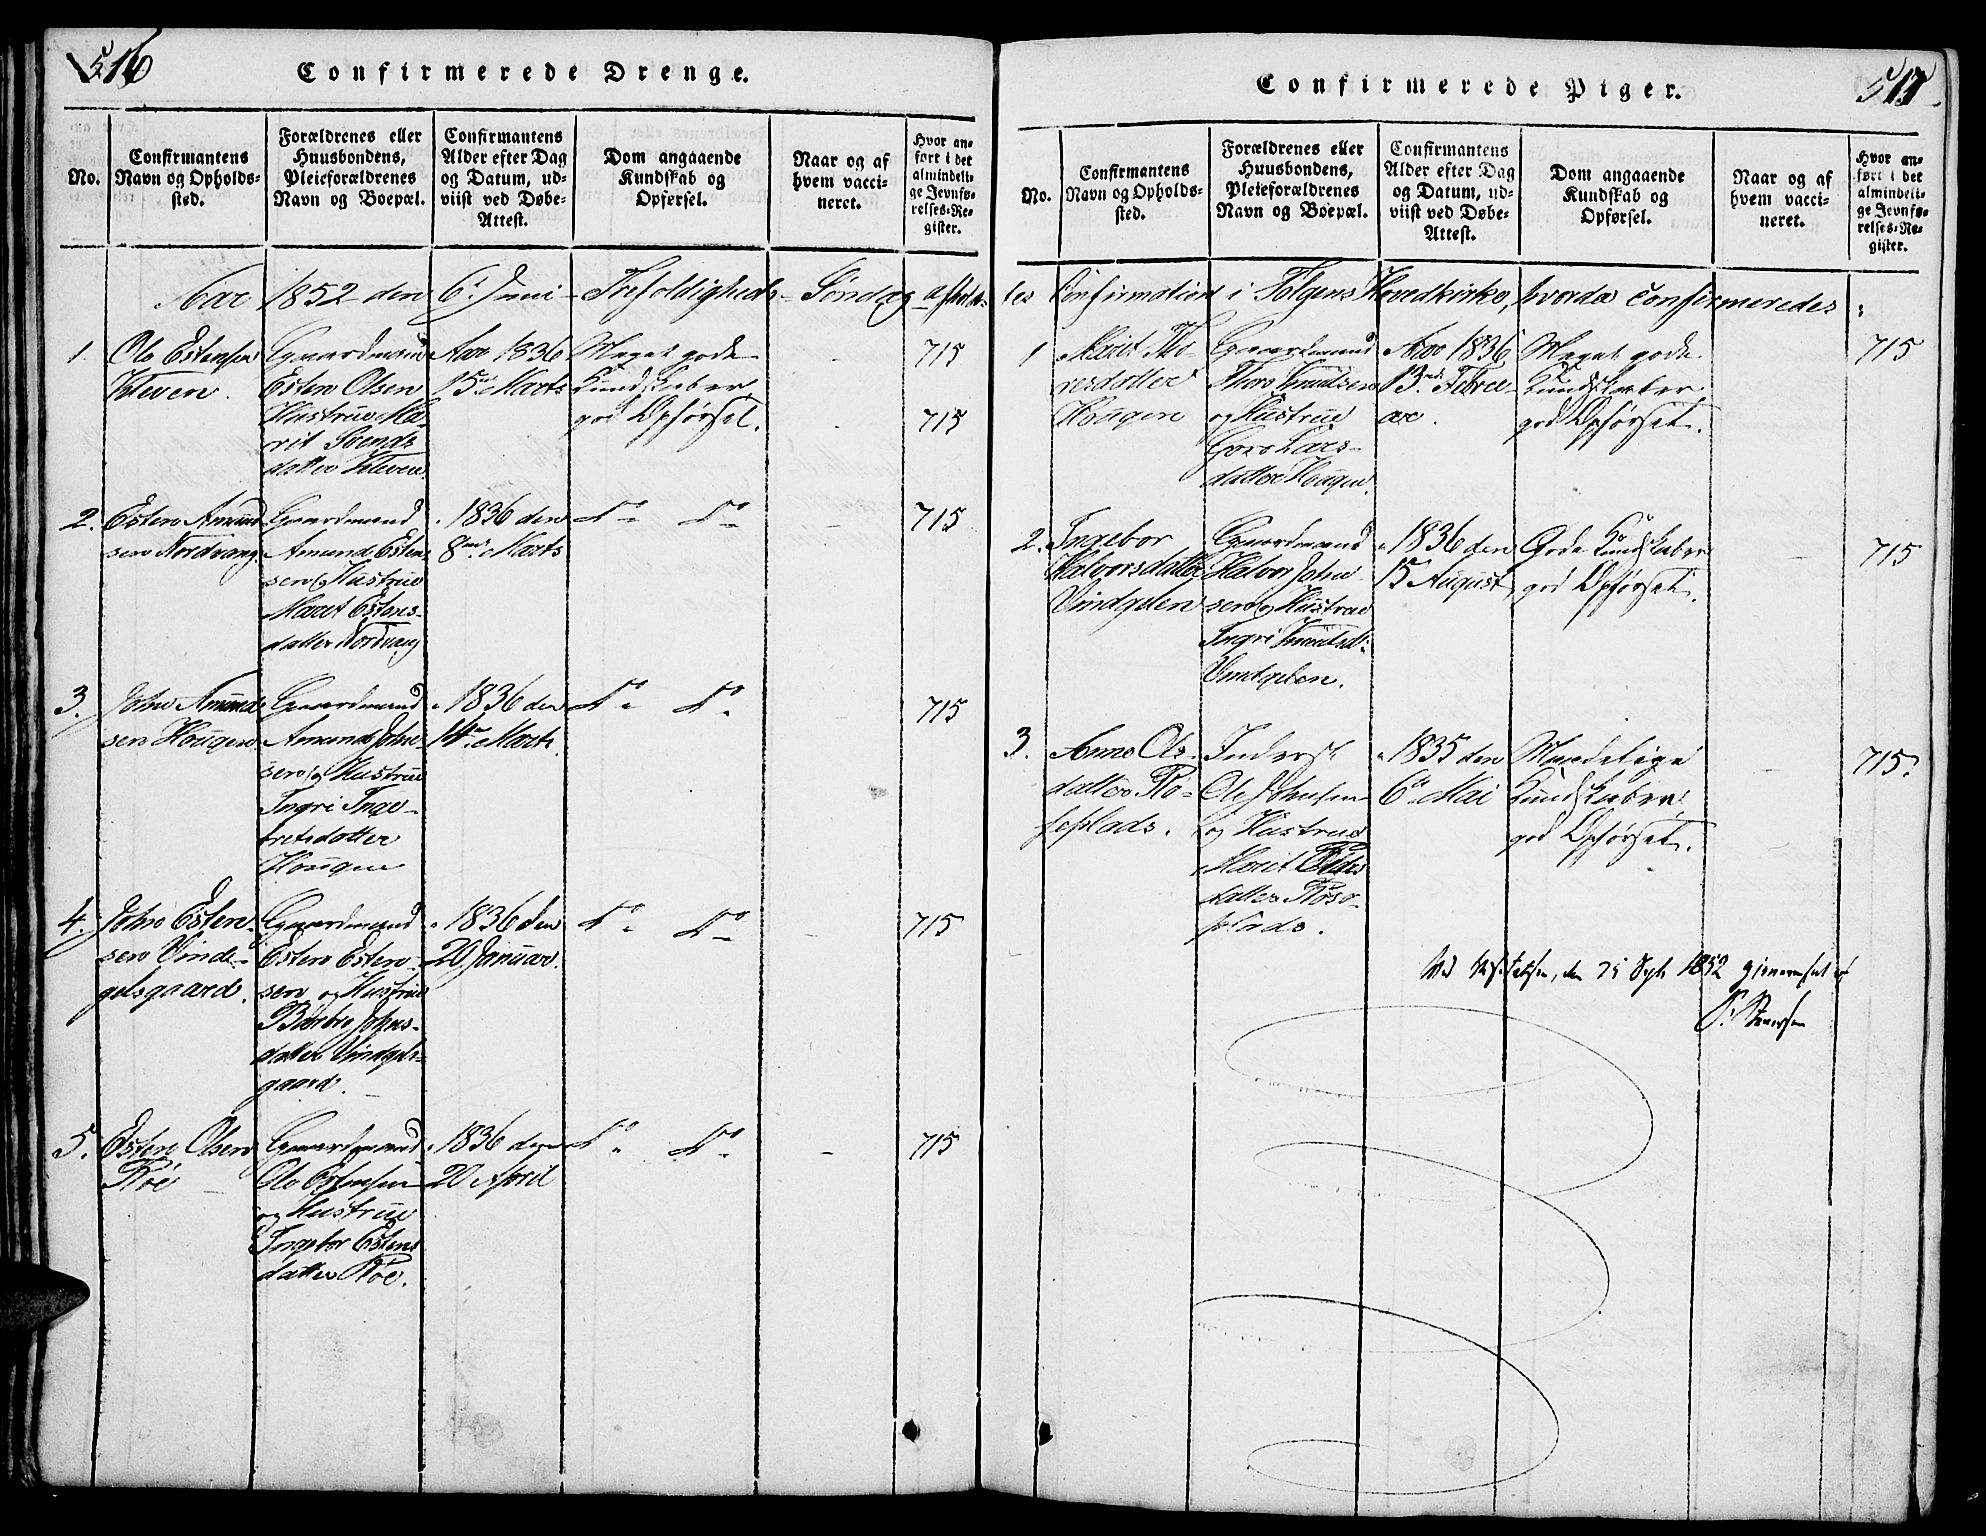 516
Confirmerede Drenge.
No.
Confirmantens
Navn og Opholds-
sted.
Forældrenes eller
Huusbondens,
Pleieforældrenes
Navn og Boepæl.
Confirmantens
Alder efter Dag
og Datum, ud-
viist ved Døbe-
Attest.
Dom angaaende
Kundskab og
Opførsel.
Naar og af
hvem vacci-
neret.
Hvor an-
ført i det
almindeli-
ge Jevnfø-
relses-Re-
gister.
Aar 1852 den 6te Juni - Trefoldigheds - Søndag - afholdt-
1.
Ole Estensen
Kleven.
Gaardmand
Esten Olsen
Hustrue Ma-
rit Svends
datter Kleven.
Aar 1836
15de Marts
Meget gode
Kundskaber,
god Opførsel.
715
715
2.
Esten Amund
sen Nordvang.
Gaardmand
Amund Esten
sen og Hustrue
Marit Estens-
datter Nordvang
" 1836 den
8de Marts
do do
715
3.
John Amund
sen Hougen.
Gaardmand
Amund John
sen og Hustrue
Ingri Inge-
bretsdatter
Hougen
" 1836 den
14de Marts.
do do
715
4.
John Esten-
sen Vind-
gelsgaard.
Gaardmand
Esten Esten-
sen og Hustrue
Børbro Johns-
datter Vindgels-
gaard.
" 1836 den
20 Januar.
do do
715
5.
Esten Olsen
Røe
Gaardmand
Ole Estensen
og Hustrue
Ingebor Estens
datter Røe.
" 1836 den
20 April
do do
715
517
Confirmerede Piger.
No.
Confirmantens
Navn og Opholds-
sted.
Forældrenes eller
Huusbondens,
Pleieforældrenes
Navn og Boepæl.
Confirmantens
Alder efter Dag
og Datum, ud-
viist ved Døbe-
Attest.
Dom angaaende
Kundskab og
Opførsel.
Naar og af
hvem vacci-
neret.
Hvor an-
ført i det
almindeli-
ge Jevnfø-
relses-Re-
gister.
tes Confirmation i Tolgens Hovedkirke, hvorda confirmeredes:
1
Marit Tho-
resdatter
Hougen
Gaardmand
Thore Knudsen
og Hustrue
Goro Lars-
datter Hougen.
Aar 1836
13de Febru-
ar.
Meget gode
Kundskaber
god Opførsel.
715
2.
Ingebor
Halvorsdatter
Vindgelen
Gaardmand
Halvor John
sen og Hustrue
Ingri Knudsd:
Vindgelen.
" 1836 den
15 August
Gode Kundskaber
god Opførsel.
715
3.
Anne Ols-
datter Rø-
seplads.
Inderst
Ole Johnsen
og Hustrue
Marit
datter Røse-
plads.
" 1835 den
6te Mai
Maadelige
Kundskaber
god Opførsel.
715.
Ved Visitatsen, den 25 Sept. 1852 gjennemseet af